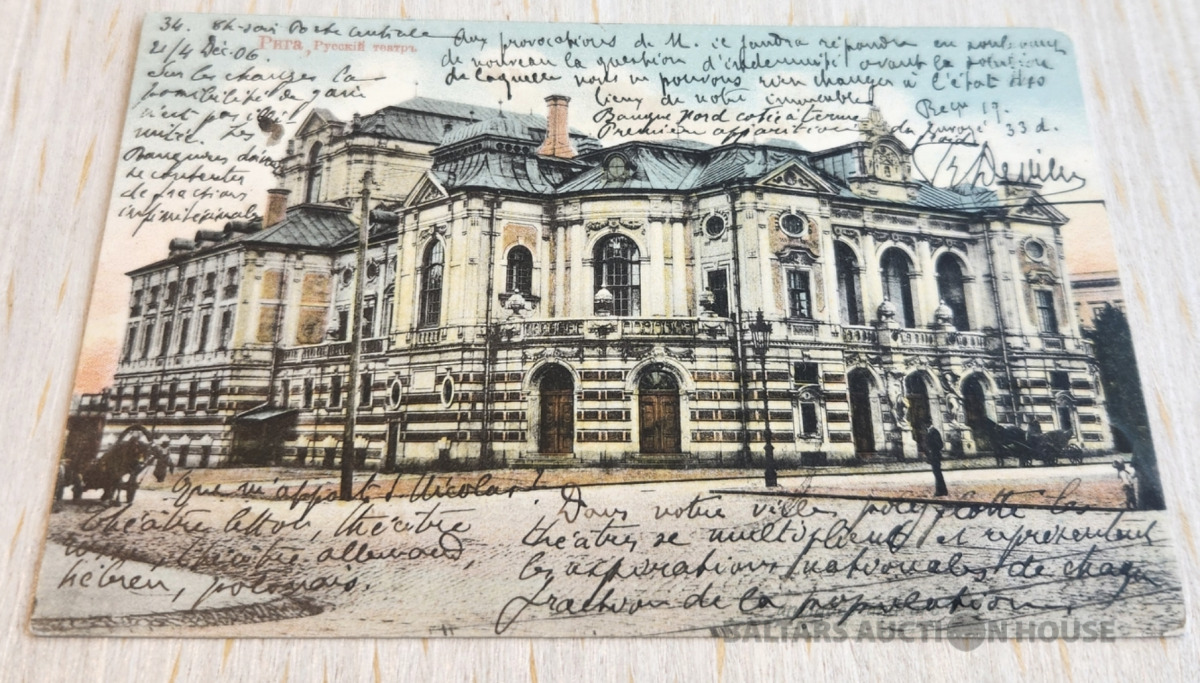 34.
21/4 Déc. 06.
Рига, Русскій театръ.
Sur les changes la
possibilité du gain
n'est pas illi
mité. Les
Banquiers doivent
se contenter
de fractions
infinitésimales
Aux provocations de M. il faudra répondre en soulevant
de nouveau la question d'indemnité avant la solution
de laquelle nous ne pouvons rien changer à l'état
lieux de notre immeuble
Banque Nord cotée à terme
Première apparition du
Reçu 19.
33 d.
Que m'apporte St Nicolas?
théâtre letton, théâtre
russe, théâtre allemand,
hébreu, polonais.
Dans notre ville polyglotte les
théâtres se multiplient et représentent
les aspirations nationales de chaque
fraction de la population.
BALTARS AUCTION HOUSE